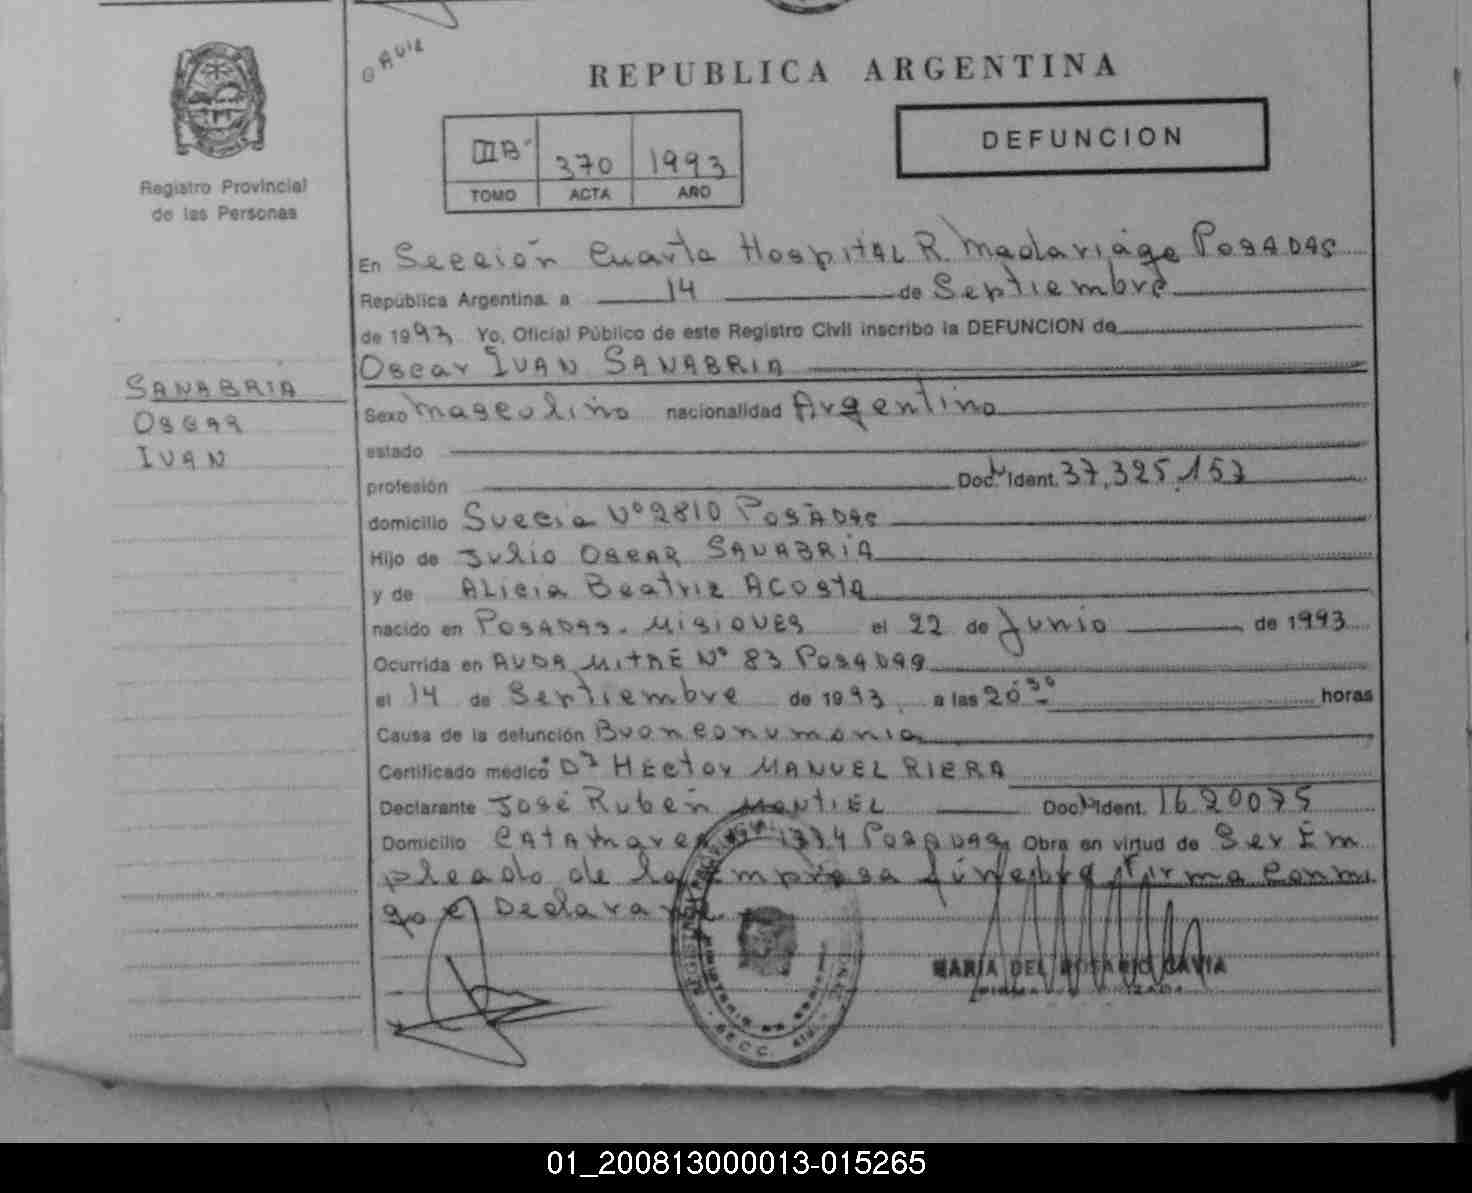 GAVIA
REPUBLICA ARGENTINA
DEFUNCION
IIIB 370 1993
TOMO ACTA AÑO
Registro Provincial
de las Personas
En Sección Cuarta Hospital R. Madariaga Posadas
República Argentina a 14 de Septiembre
de 1993 Yo, Oficial Público de este Registro Civil inscribo la DEFUNCION de
Oscar IVAN SANABRIA
SANABRIA
OSCAR
IVAN
Sexo masculino nacionalidad Argentino
estado
profesión Doc. Ident. 37,325,157
domicilio Suecia Nº 2810 POSADAS
Hijo de Julio OSCAR SANABRIA
y de ALicia Beatriz ACOSTA
nacido en POSADAS. MISIONES el 22 de Junio de 1993
Ocurrida en AVDA MITRE Nº 83 POSADAS
el 14 de Septiembre de 1993 a las 20 30 horas
Causa de la defunción Bronconumonia
Certificado médico Dr Héctor MANUEL RIERA
Declarante José Rubén MONTIEL Doc. Ident. 16.20075
Domicilio CATAmarca 1334 POSADAS Obra en virtud de Ser Em
pleado de la Empresa fúnebre firma Conmi
go el Declarante
MARIA DEL ROSARIO GAVIA
FIRMA AUTORIZADA
01_200813000013-015265